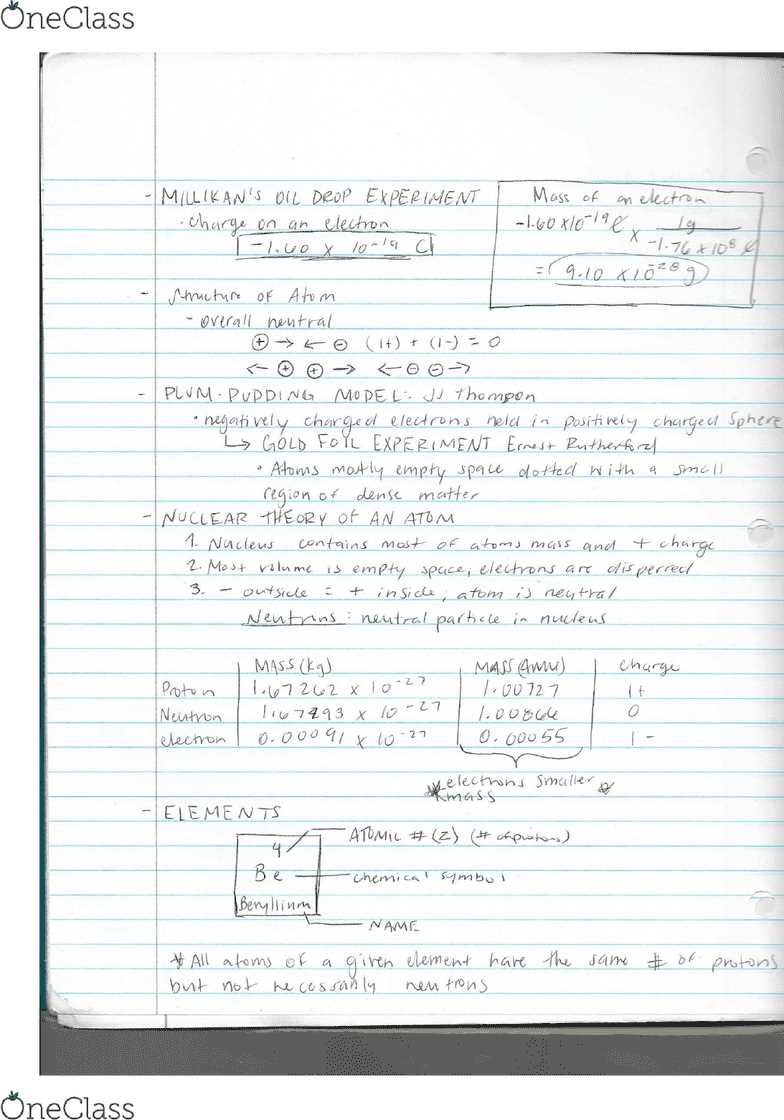 OneClass
- MILLIKAN'S OIL DROP EXPERIMENT
· charge on an electron
-1.60 x 10-19 C
Mass of an electron
-1.60 x10-19 C x 1g / -1.76 x 10^8 C
= 9.10 x 10-28 g
- Structure of Atom
- overall neutral
⊕ → ← ⊖ (1+) + (1-) = 0
← ⊕ ⊕ → ← ⊖ ⊖ →
- PLUM-PUDDING MODEL: JJ Thompson
· negatively charged electrons held in positively charged sphere
↳ GOLD FOIL EXPERIMENT Ernest Rutherford
· Atoms mostly empty space dotted with a small
region of dense matter
- NUCLEAR THEORY OF AN ATOM
1. Nucleus contains most of atoms mass and + charge
2. Most volume is empty space, electrons are dispersed
3. - outside = + inside, atom is neutral
Neutrons: neutral particle in nucleus
MASS (kg) MASS (AMU) charge
Proton 1.67262 x 10-27 1.00727 1+
Neutron 1.67493 x 10-27 1.00866 0
electron 0.00091 x 10-27 0.00055 1-
* electrons smaller *
mass
- ELEMENTS
4 ATOMIC # (Z) (# of protons)
Be chemical symbol
Beryllium
NAME
* All atoms of a given element have the same # of protons
but not necessarily neutrons
OneClass